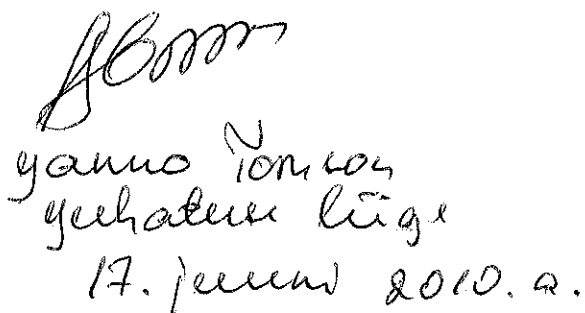 Janno Tomson
juhatuse liige
17. juuni 2010. a.